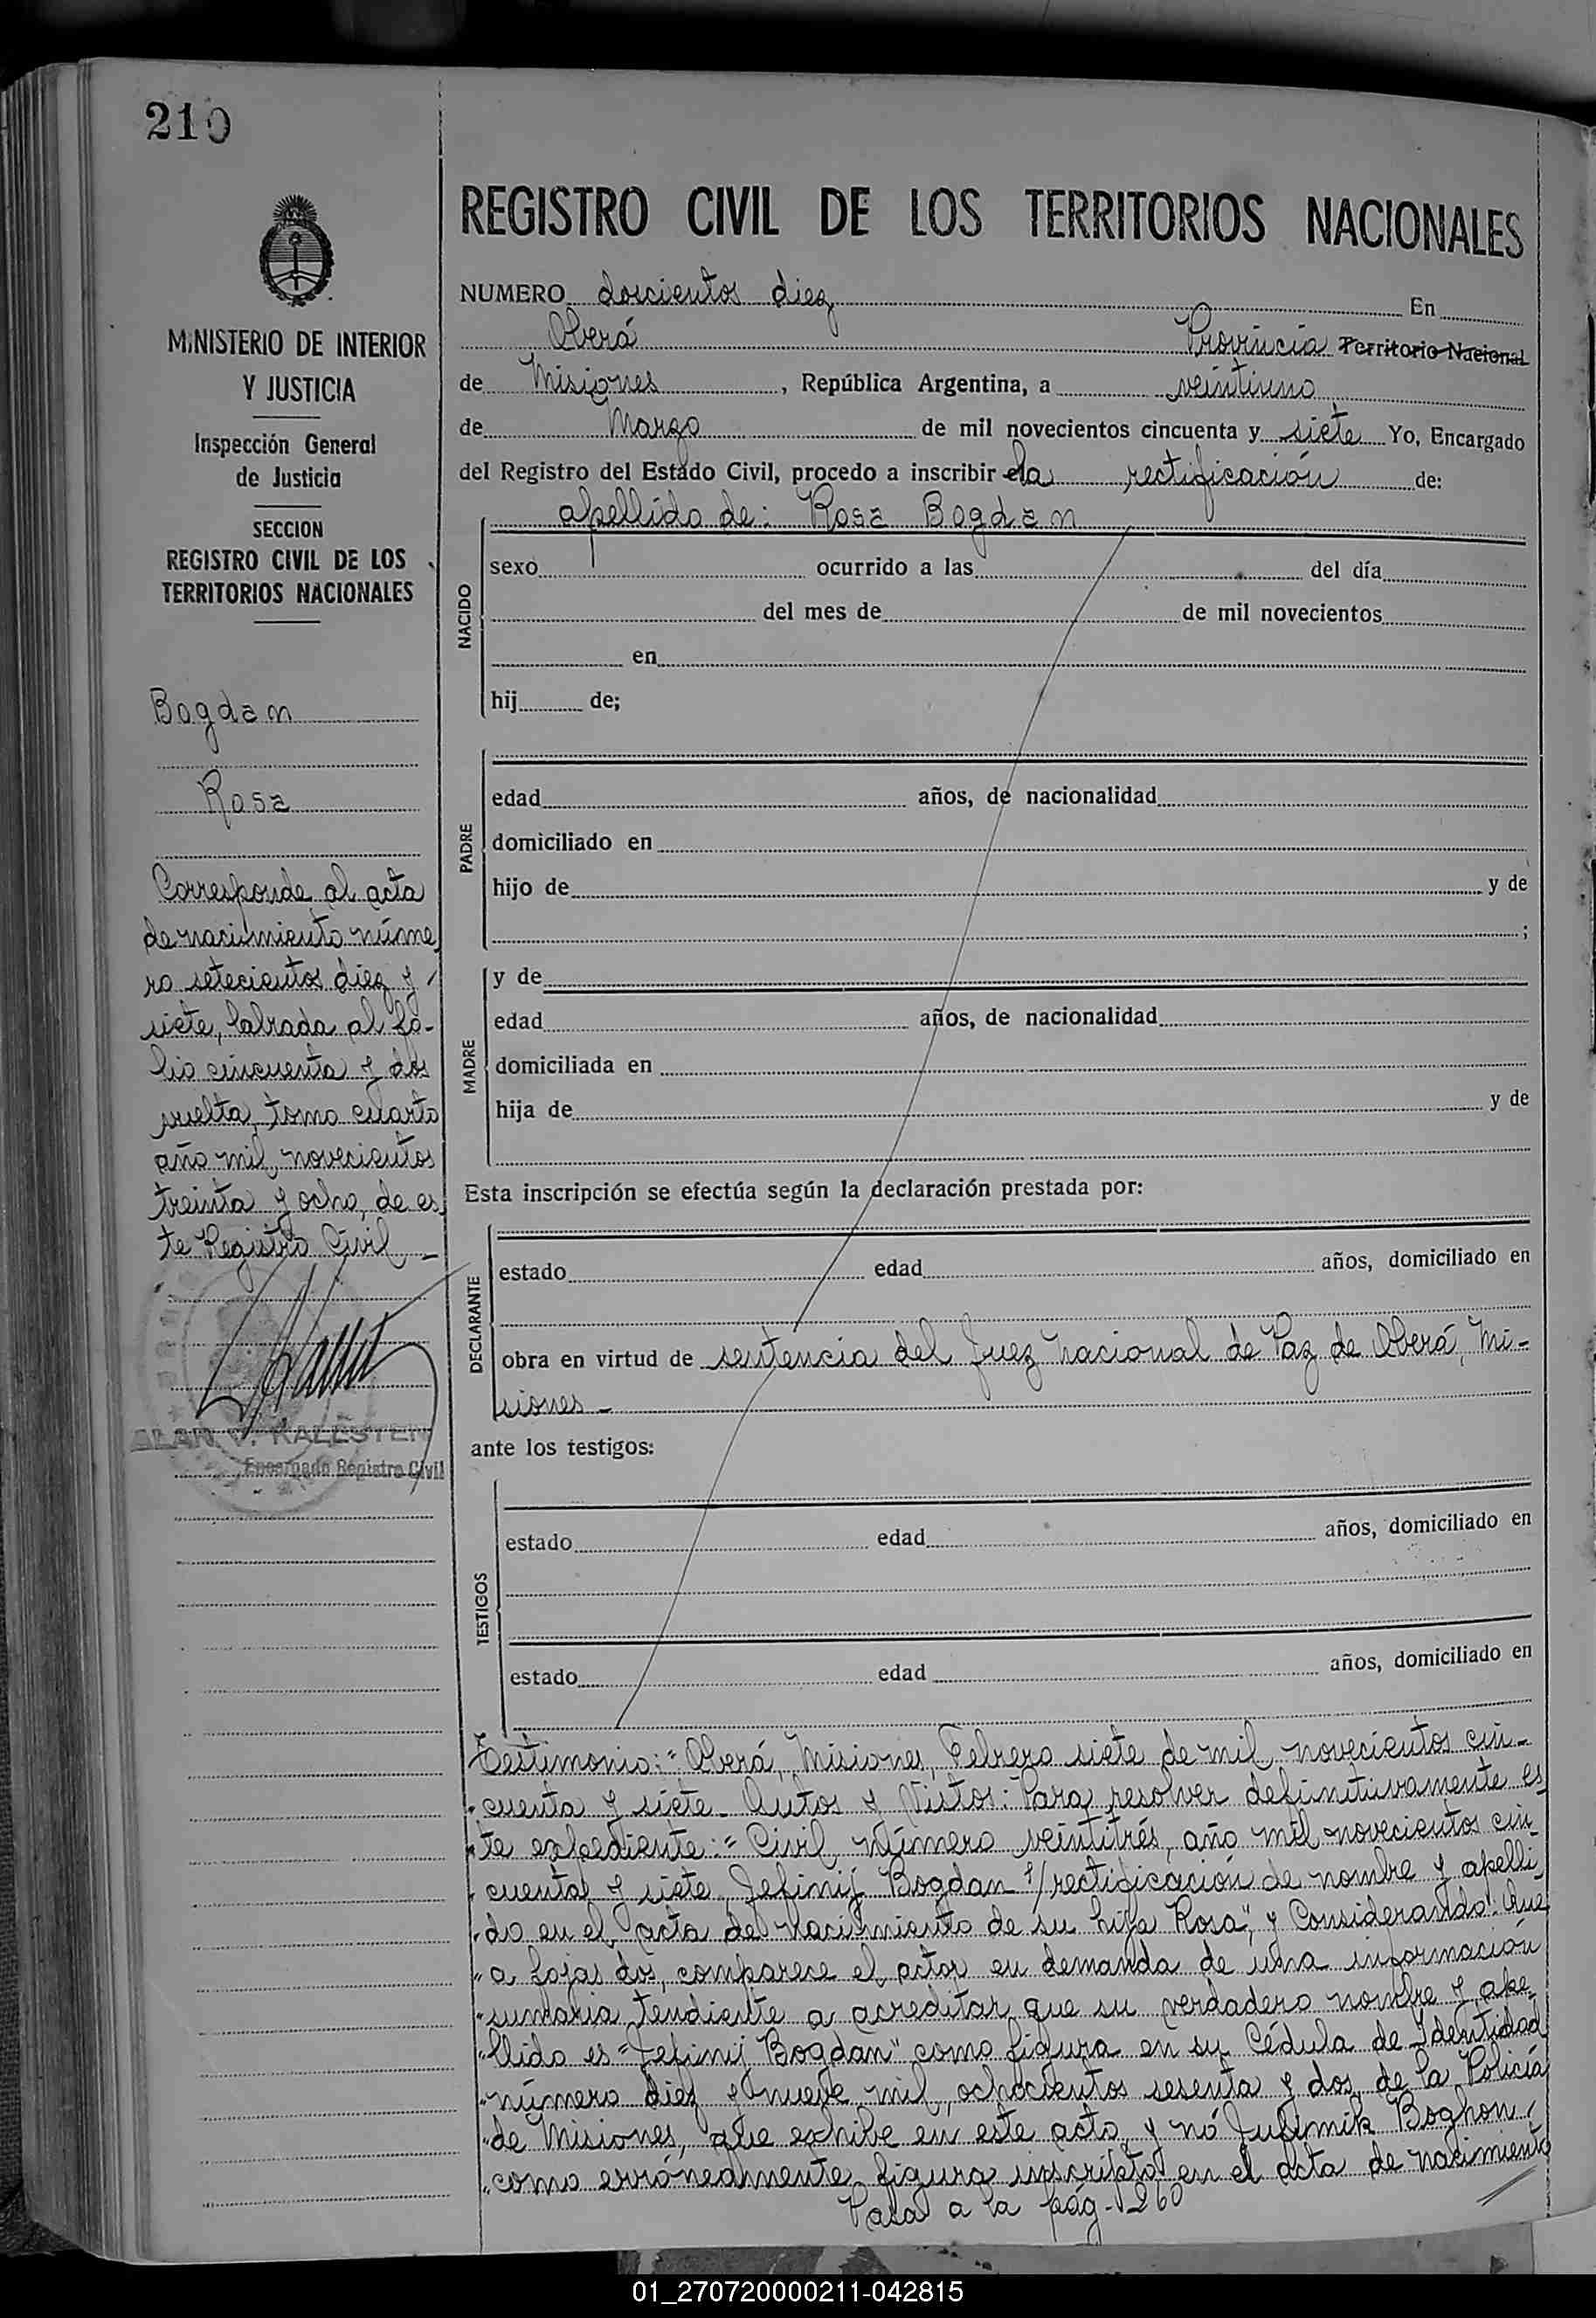 210
MINISTERIO DE INTERIOR
Y JUSTICIA
Inspección General
de Justicia
SECCION
REGISTRO CIVIL DE LOS
TERRITORIOS NACIONALES
Bogdan
Rosa
Corresponde al acta
de nacimiento núme
ro setecientos diez y
siete, labrada al fo-
lio cincuenta y dos
vuelta, tomo cuarto
año mil novecientos
treinta y ocho, de es
te Registro Civil -
ALAN V. KALLSTEN
Encargado Registro Civil
REGISTRO CIVIL DE LOS TERRITORIOS NACIONALES
NUMERO doscientos diez En
Oberá Provincia Territorio Nacional
de Misiones, República Argentina, a veintiuno
de Marzo de mil novecientos cincuenta y siete Yo, Encargado
del Registro del Estado Civil, procedo a inscribir la rectificación de:
apellido de: Rosa Bogdan
NACIDO
sexo ocurrido a las del día
del mes de de mil novecientos
en
hij de;
PADRE
edad años, de nacionalidad
domiciliado en
hijo de y de
;
MADRE
y de
edad años, de nacionalidad
domiciliada en
hija de y de
Esta inscripción se efectúa según la declaración prestada por:
DECLARANTE
estado edad años, domiciliado en
obra en virtud de sentencia del Juez Nacional de Paz de Oberá, Mi-
siones -
ante los testigos:
TESTIGOS
estado edad años, domiciliado en
estado edad años, domiciliado en
Testimonio:" Oberá, Misiones, Febrero siete de mil novecientos cin-
"cuenta y siete. Autos y Vistos: Para resolver definitivamente es
"te expediente:" Civil número veintitrés, año mil novecientos cin-
"cuenta y siete, Jefimij Bogdan s/ rectificación de nombre y apelli
"do en el acta de nacimiento de su hija Rosa", y Considerando: Que
"a fojas dos, comparece el actor en demanda de una información
"sumaria tendiente a acreditar que su verdadero nombre y ape-
"llido es "Jefimij Bogdan" como figura en su Cédula de Identidad
"número diez y nueve mil ochocientos sesenta y dos, de la Policía
"de Misiones, que exhibe en este acto, y nó Jufimik Boghon,
"como erróneamente figura inscripto en el acta de nacimiento
Pasa a la pág - 260
01_270720000211-042815